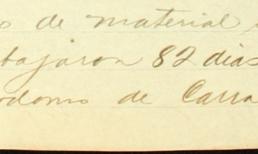 s de material
bajaron 82 dias
odomo de Carra